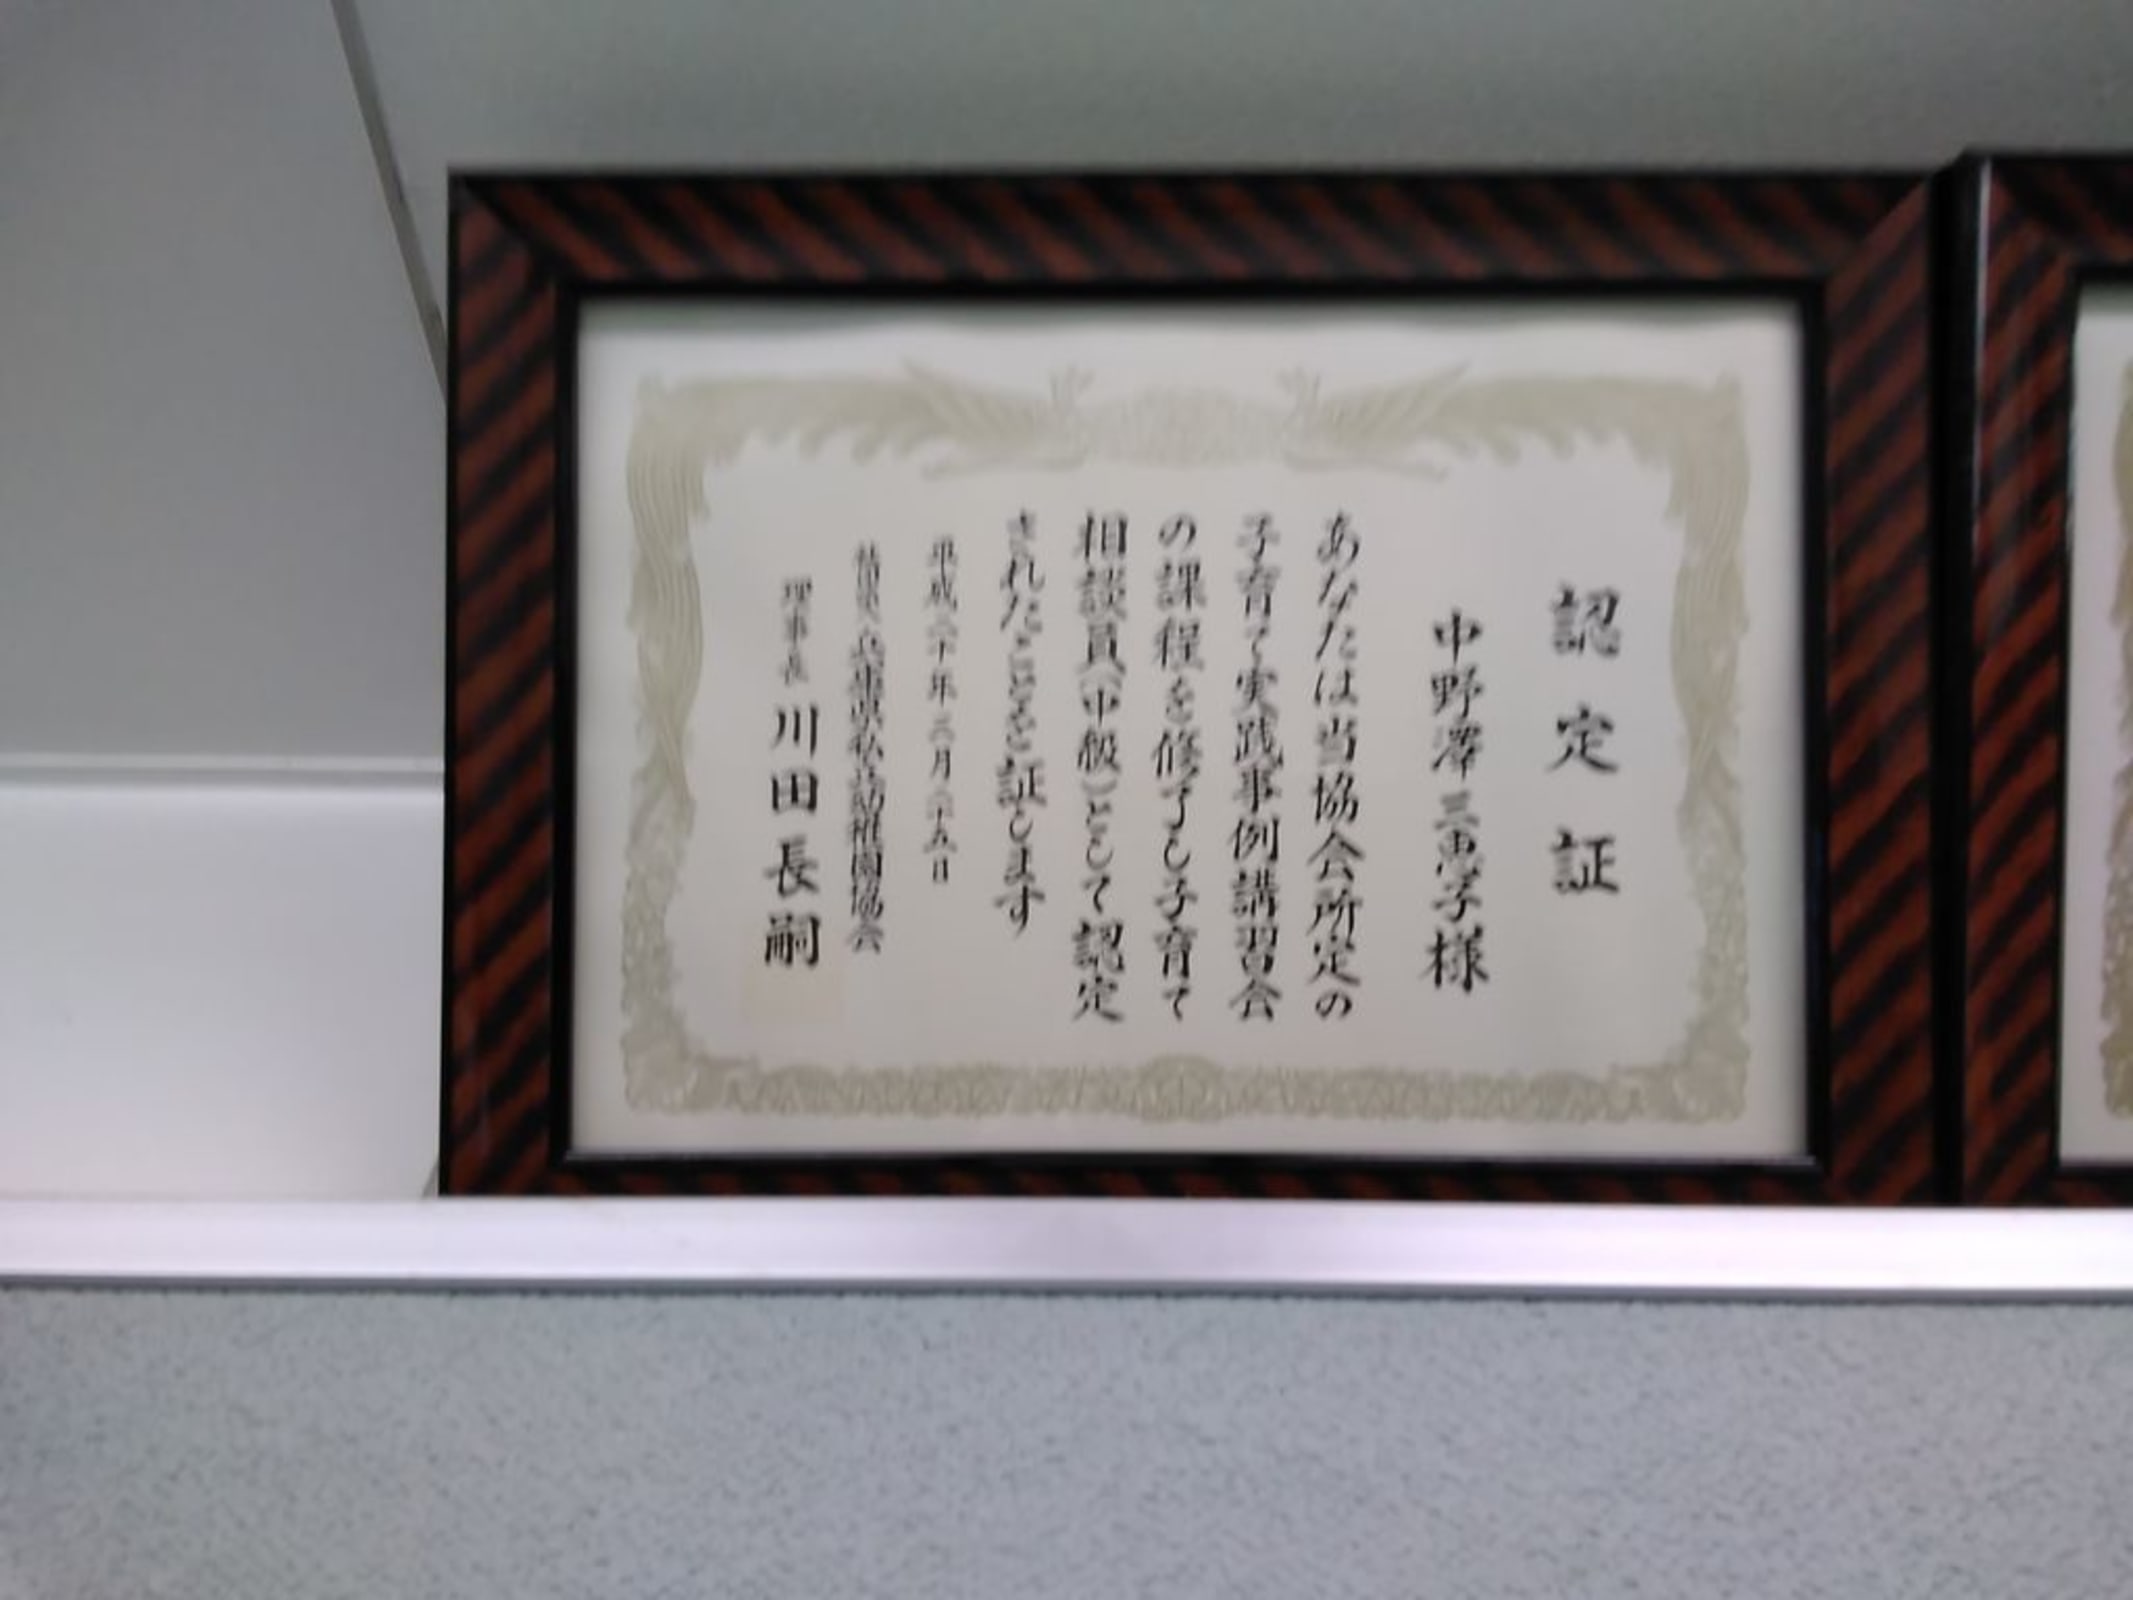 認定証
中野澤三恵子様
あなたは当協会所定の
子育て実践事例講習会
の課程を修了し子育て
相談員(中級)として認定
されたことを証します
平成二十年三月二十五日
社団法人兵庫県私立幼稚園協会
理事長 川田長嗣